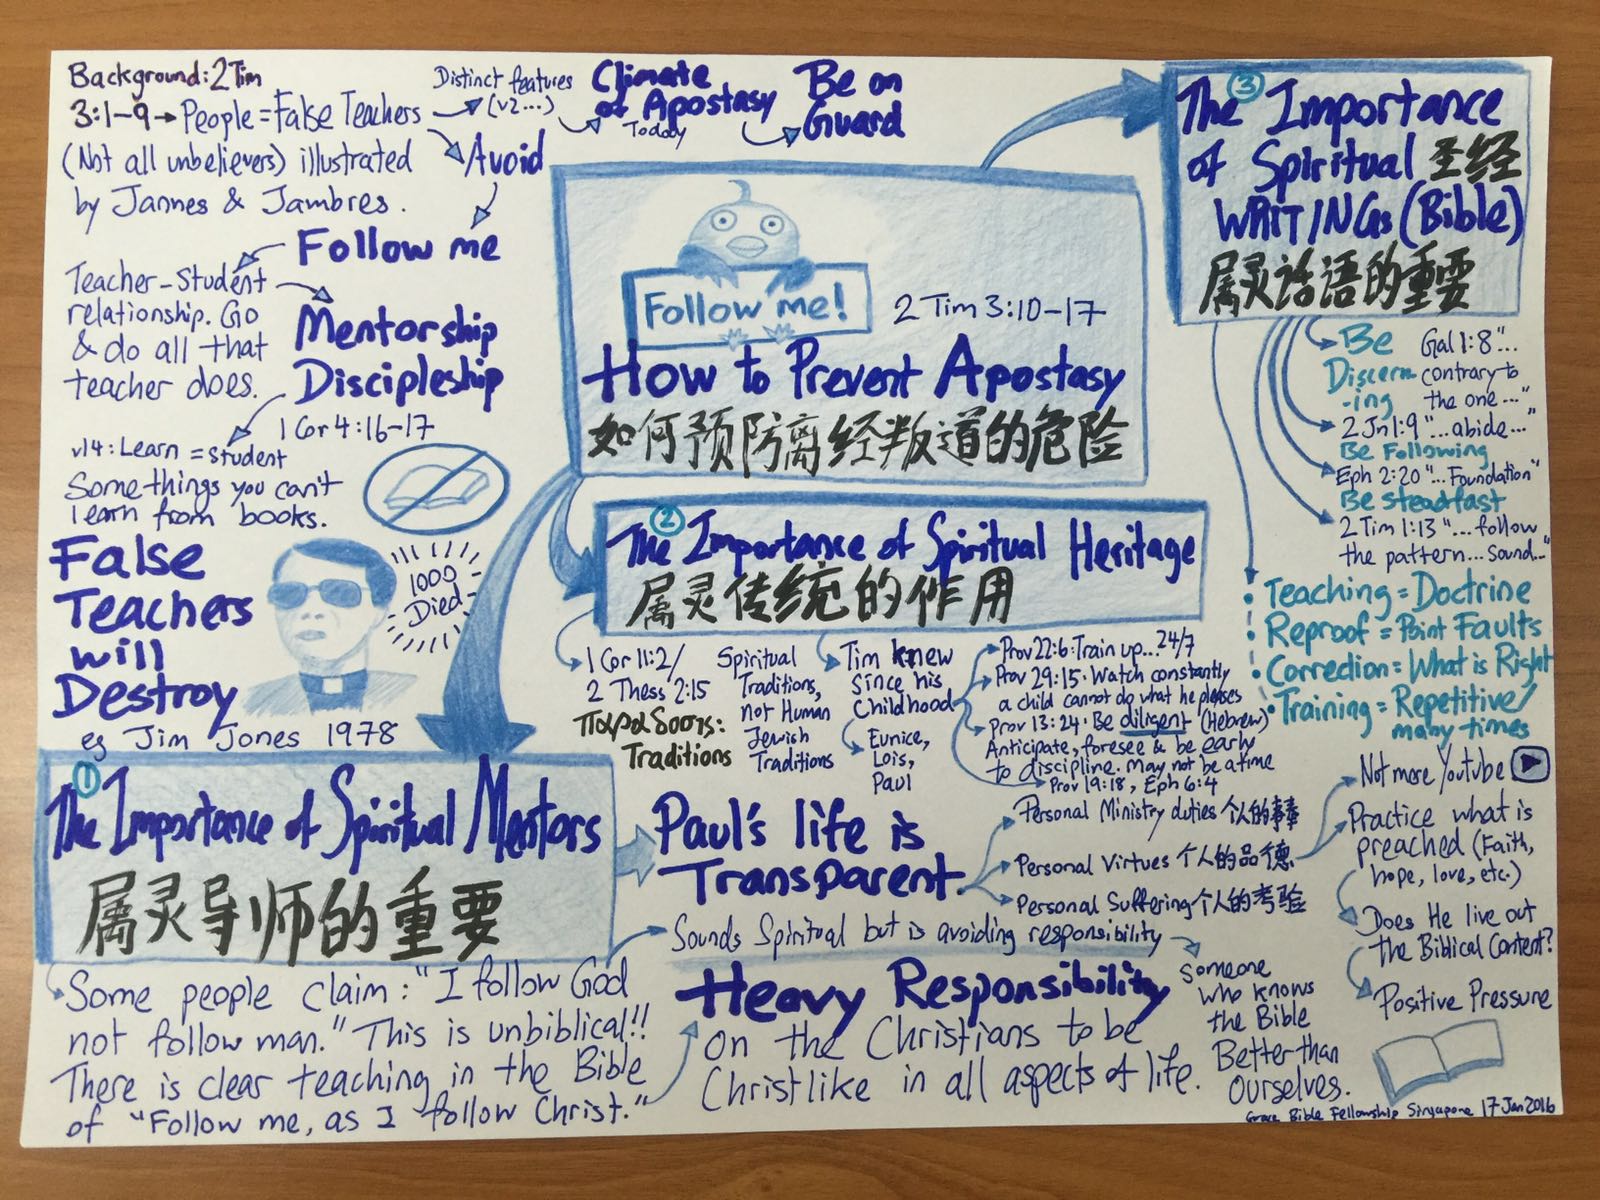 Background: 2 Tim
3:1-9 → People = False Teachers
(Not all unbelievers) illustrated
by Jannes & Jambres.
Distinct features
(v2...)
Climate
of Apostasy
Today
Be on
Guard
Avoid
Follow me
Teacher-Student
relationship. Go
& do all that
teacher does.
Mentorship
Discipleship
1 Cor 4:16-17
v14: Learn = student
Some things you can't
learn from books.
False
Teachers
will
Destroy
eg Jim Jones 1978
1000
Died
Follow me!
2 Tim 3:10-17
How to Prevent Apostasy
如何预防离经叛道的危险
①
The Importance of Spiritual Mentors
属灵导师的重要
Some people claim: "I follow God
not follow man." This is unbiblical!!
There is clear teaching in the Bible
of "Follow me, as I follow Christ."
Paul's life is
Transparent
Personal Ministry duties 个人的事
Personal Virtues 个人的品德
Personal Suffering 个人的考验
Not more Youtube
Practice what is
preached (Faith,
hope, love, etc.)
Does He live out
the Biblical Content?
Positive Pressure
Sounds Spiritual but is avoiding responsibility
Someone
who knows
the Bible
Better than
Ourselves.
Heavy Responsibility
on the Christians to be
Christlike in all aspects of life.
②
The Importance of Spiritual Heritage
属灵传统的作用
1 Cor 11:2/
2 Thess 2:15
παραδοσις:
Traditions
Spiritual
Traditions,
not Human
Jewish
Traditions
Tim knew
since his
childhood
Eunice,
Lois,
Paul
Prov 22:6: Train up...24/7
Prov 29:15. Watch constantly
a child cannot do what he pleases
Prov 13:24. Be diligent (Hebrew)
Anticipate, foresee & be early
to discipline. May not be a time
Prov 19:18, Eph 6:4
③
The Importance
of Spiritual 圣经
WRITINGs (Bible)
属灵话语的重要
Be
Discern
-ing
Gal 1:8 "...
contrary to
the one..."
2 Jn 1:9 "...abide..."
Be Following
Eph 2:20 "...Foundation"
Be Steadfast
2 Tim 1:13 "...follow
the pattern...sound..."
• Teaching = Doctrine
• Reproof = Point Faults
• Correction = What is Right
• Training = Repetitive/
many times
Grace Bible Fellowship Singapore 17 Jan 2016